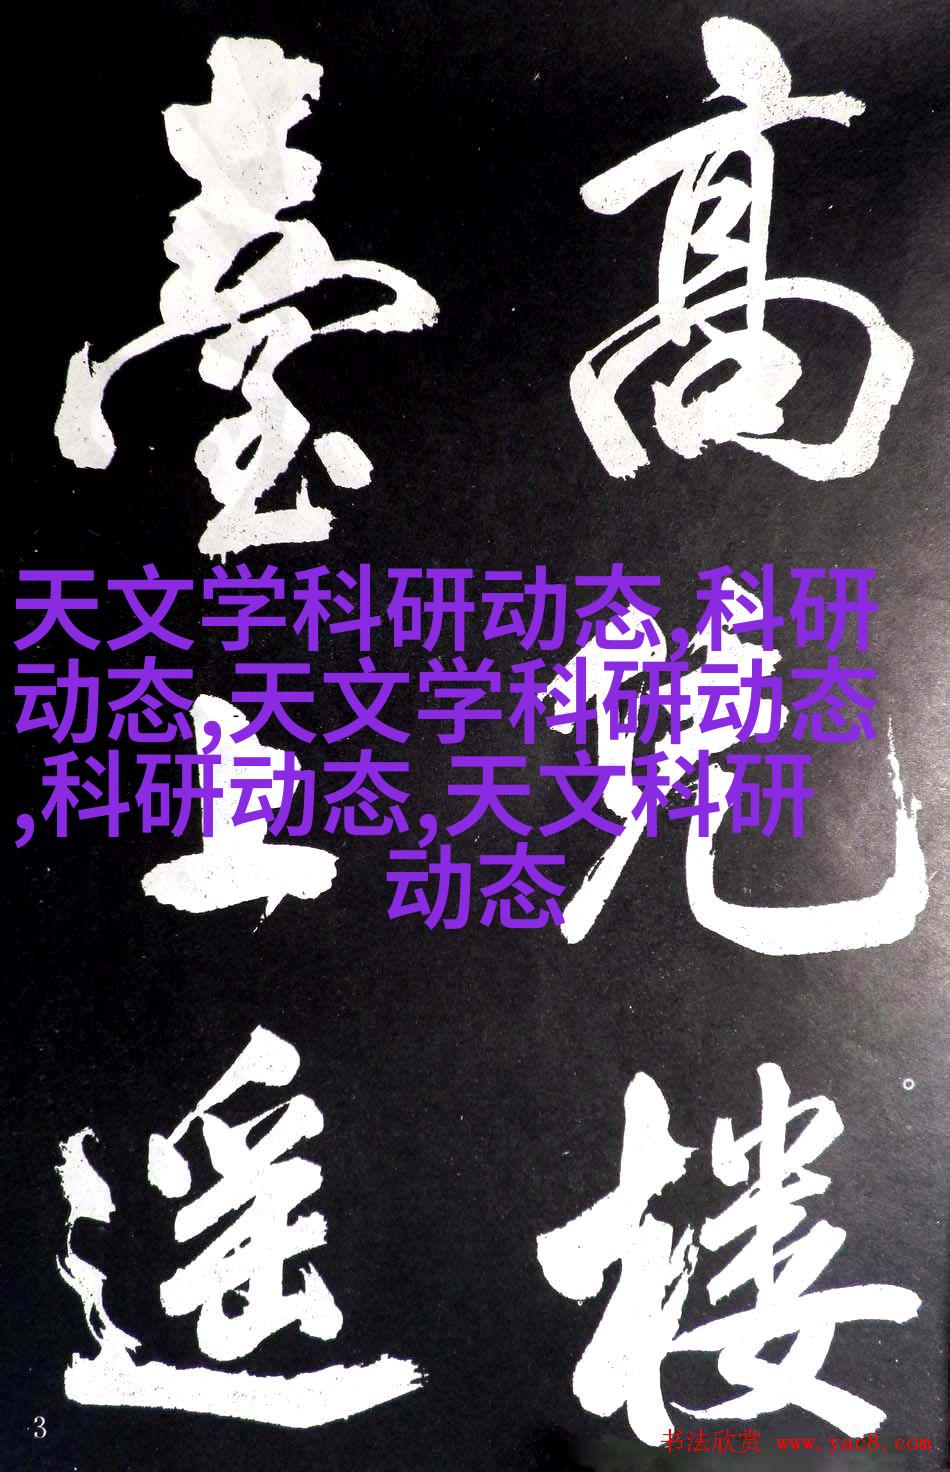 高
楼
臺上遥
天文学科研动态,科研
动态,天文学科研动态
,科研动态,天文科研
动态
3
书法欣赏 www.yac8.com